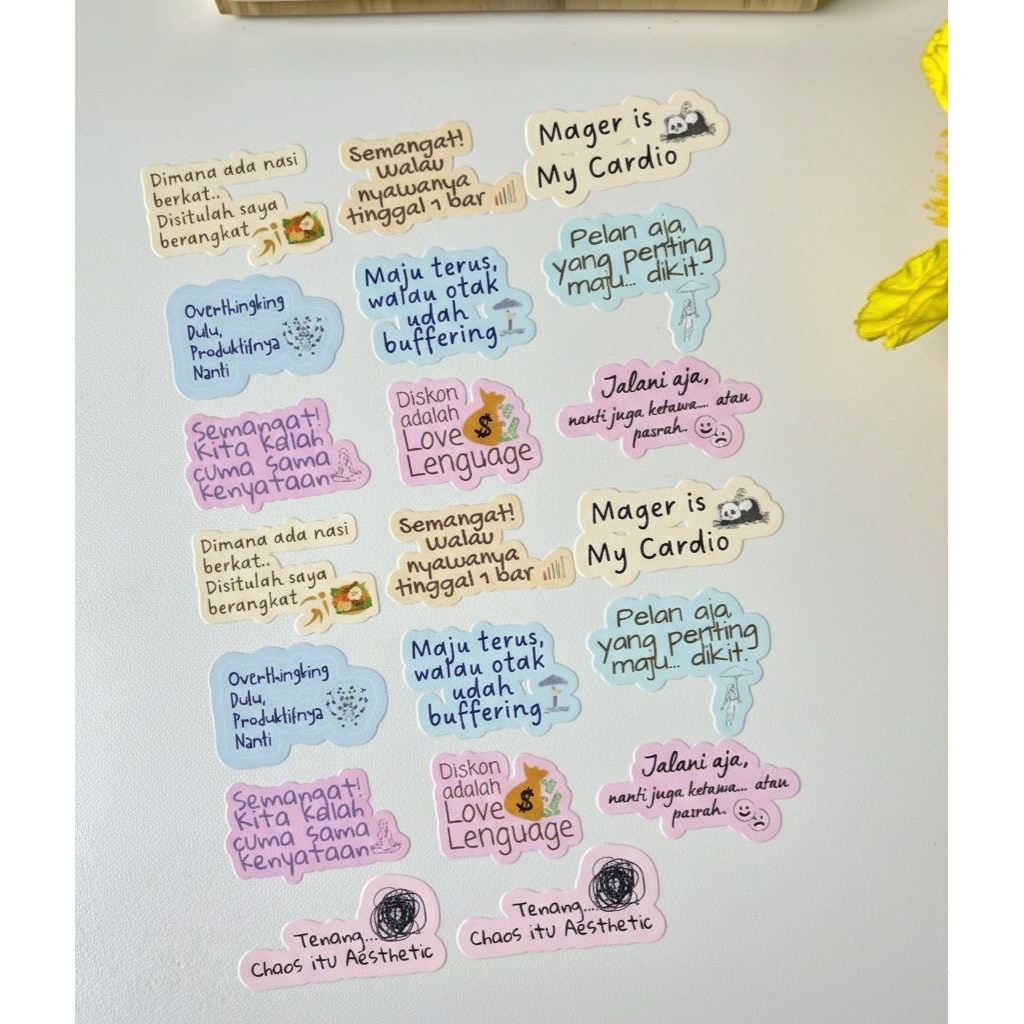 Dimana ada nasi
berkat..
Disitulah saya
berangkat
Semangat!
walau
nyawanya
tinggal 1 bar
Mager is
My Cardio
Overthingking
Dulu,
Produktifnya
Nanti
Maju terus,
walau otak
udah
buffering
Pelan aja,
yang penting
maju... dikit.
Semangat!
Kita kalah
cuma sama
kenyataan
Diskon
adalah
Love
Lenguage
$
Jalani aja,
nanti juga ketawa... atau
pasrah.
Dimana ada nasi
berkat..
Disitulah saya
berangkat
Semangat!
walau
nyawanya
tinggal 1 bar
Mager is
My Cardio
Overthingking
Dulu,
Produktifnya
Nanti
Maju terus,
walau otak
udah
buffering
Pelan aja,
yang penting
maju... dikit.
Semangat!
Kita kalah
cuma sama
kenyataan
Diskon
adalah
Love
Lenguage
$
Jalani aja,
nanti juga ketawa... atau
pasrah.
Tenang...
Chaos itu Aesthetic
Tenang...
Chaos itu Aesthetic